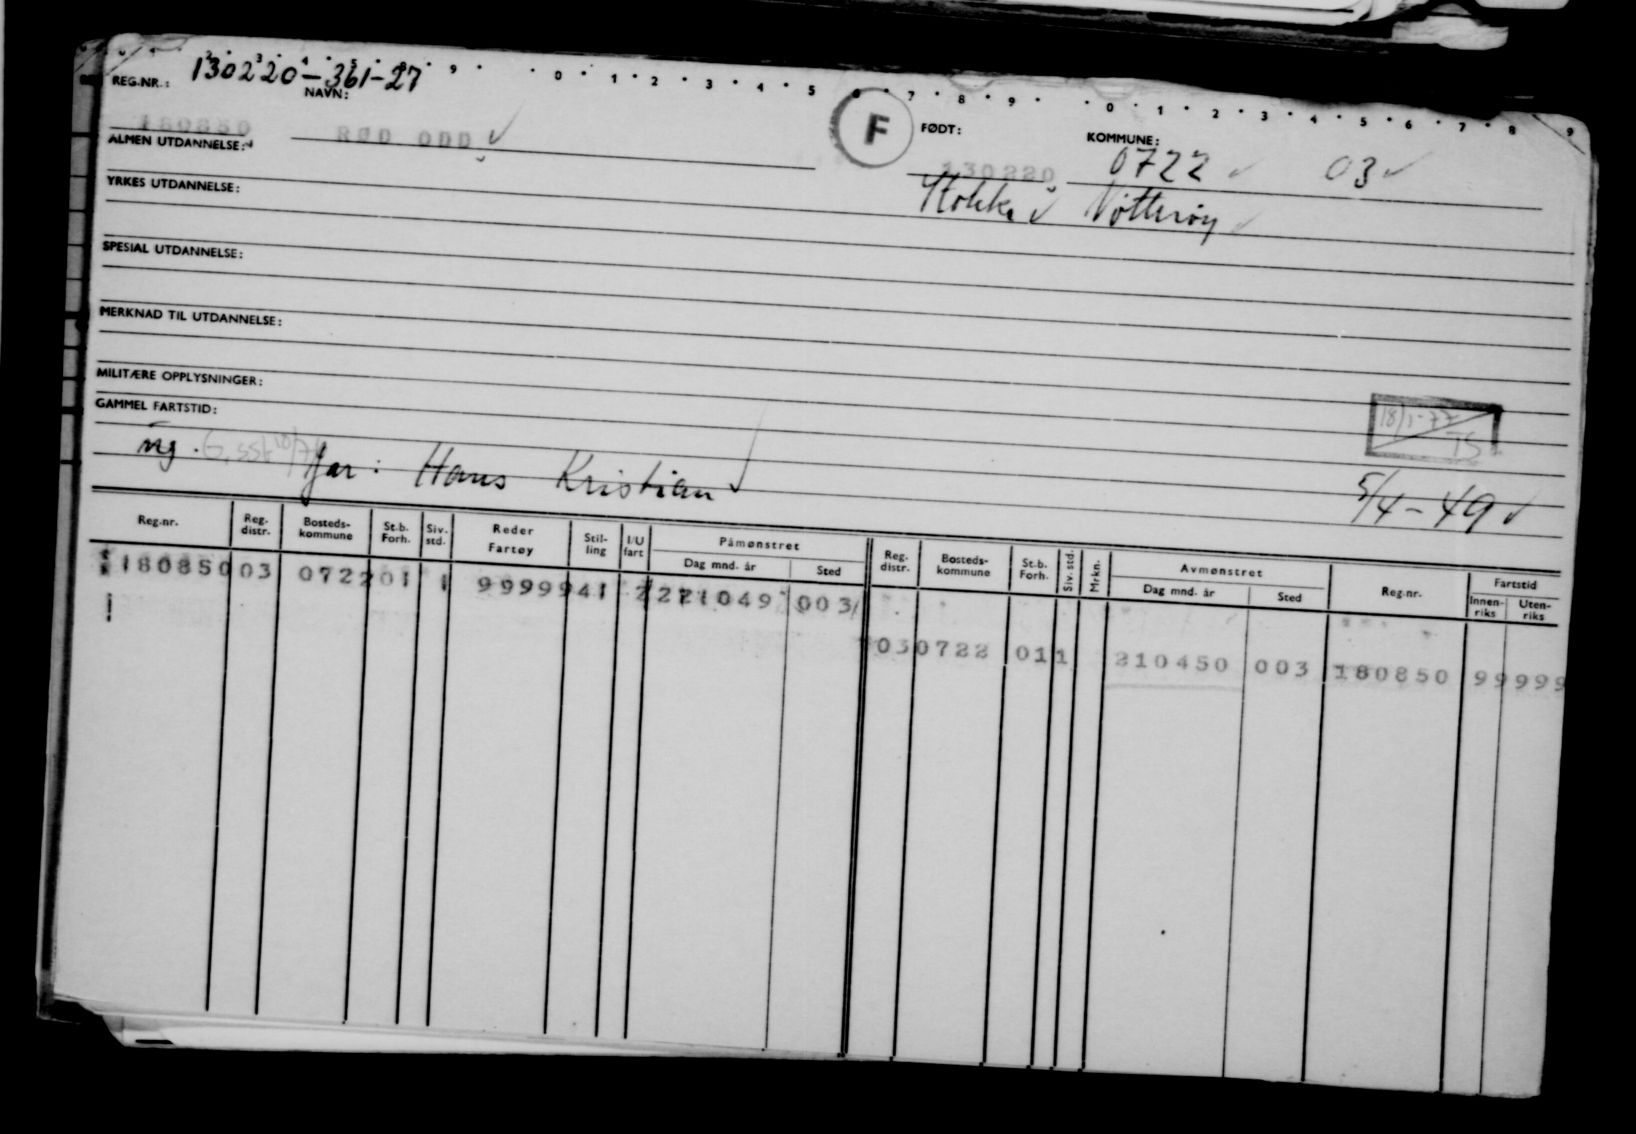 REG.NR.: 130220-361-27
9 0 1 2 3 4 5 6 7 8 9 0 1 2 3 4 5 6 7 8 9
NAVN:
180850 RØD ODD ✓ F FØDT: 130220 KOMMUNE: 0722 ✓ 03 ✓
ALMEN UTDANNELSE:
Stokke ✓ Nøtterøy ✓
YRKES UTDANNELSE:
SPESIAL UTDANNELSE:
MERKNAD TIL UTDANNELSE:
MILITÆRE OPPLYSNINGER:
GAMMEL FARTSTID:
18/1-77
TS
ng. far: Hans Kristian ✓
5/4-49 ✓
Reg.nr. Reg. distr. Bosteds-kommune St.b. Forh. Siv. std. Reder Fartøy Stil-ling I/U fart Påmønstret Dag mnd. år Sted Reg. distr. Bosteds-kommune St.b. Forh. Siv. std. Mrkn. Avmønstret Dag mnd. år Sted Reg.nr. Fartstid Innen-riks Uten-riks
180850 03 0722 01 1 9999 941 2 221049 003
03 0722 01 1 210450 003 180850 99999